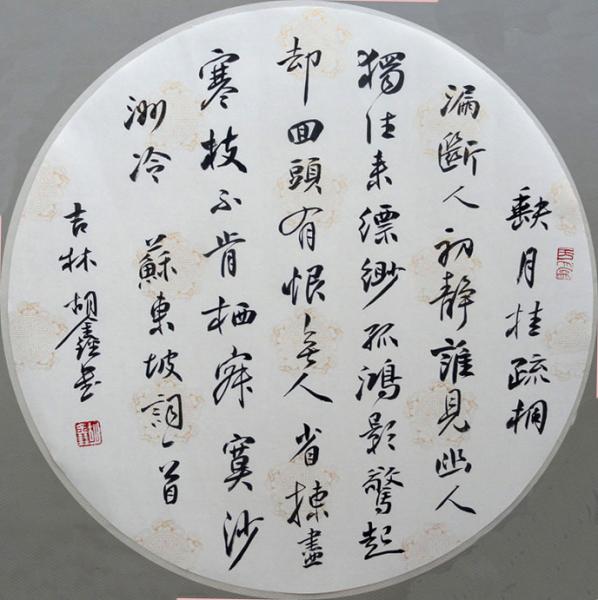 缺月挂疏桐
漏斷人初静誰見幽人
獨往来缥缈孤鴻影驚起
却回頭有恨無人省揀盡
寒枝不肯栖寂寞沙
洲冷 蘇東坡詞一首
吉林胡鑫書